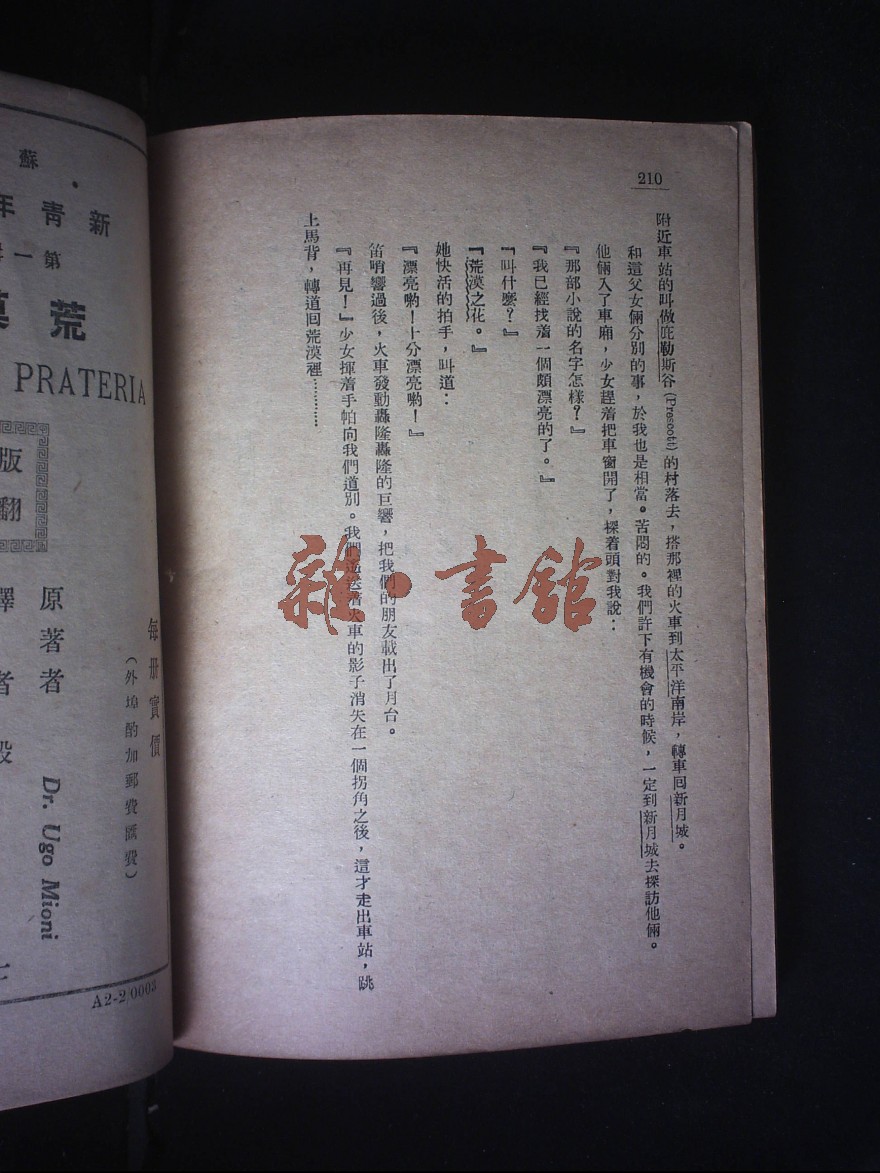 210
附近車站的叫做庇勒斯谷(Prescott)的村落去，搭那裡的火車到太平洋南岸，轉車囘新月城。
和這父女倆分別的事，於我也是相當。苦悶的。我們許下有機會的時候，一定到新月城去探訪他倆。
他倆入了車廂，少女趕着把車窗開了，探着頭對我說：
『那部小說的名字怎樣？』
『我已經找着一個頗漂亮的了。』
『叫什麼？』
『荒漠之花。』
她快活的拍手，叫道：
『漂亮喲！十分漂亮喲！』
笛哨響過後，火車發動轟隆轟隆的巨響，把我們的朋友載出了月台。
『再見！』少女揮着手帕向我們道別。我們送着火車的影子消失在一個拐角之後，這才走出車站，跳
上馬背，轉道囘荒漠裡…………
雜·書館
蘇
新青年
第一
荒
PRATERIA
版
翻
每册實價
（外埠酌加郵費匯費）
原著者 Dr. Ugo Mioni
譯者
A2-2/0003